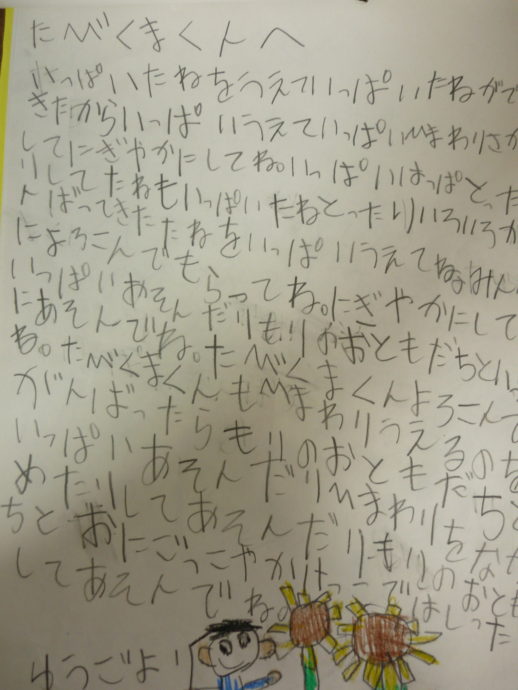 たべくまくんへ
いっぱいたねをうえていっぱいたねがで
きたからいっぱいうえていっぱいひまわりさか
してにぎやかにしてね。いっぱいはっぱとった
りしてたねもいっぱいたねとったりいろいろが
んばってきたたねをいっぱいうえてね。みん
によろこんでもらってね。にぎやかにして
いっぱいあそんだりもりのおともだちといっ
にあそんでね。たべくまくんよろこんで
ね。たべくまくんもひまわりうえるの
がんばったらもりのおともだちと
いっぱいあそんだりひまわりをなが
めたりしてあそんだりもりのおとも
ちとおにごっこやかけっこではしった
してあそんでね。
ゆうごより